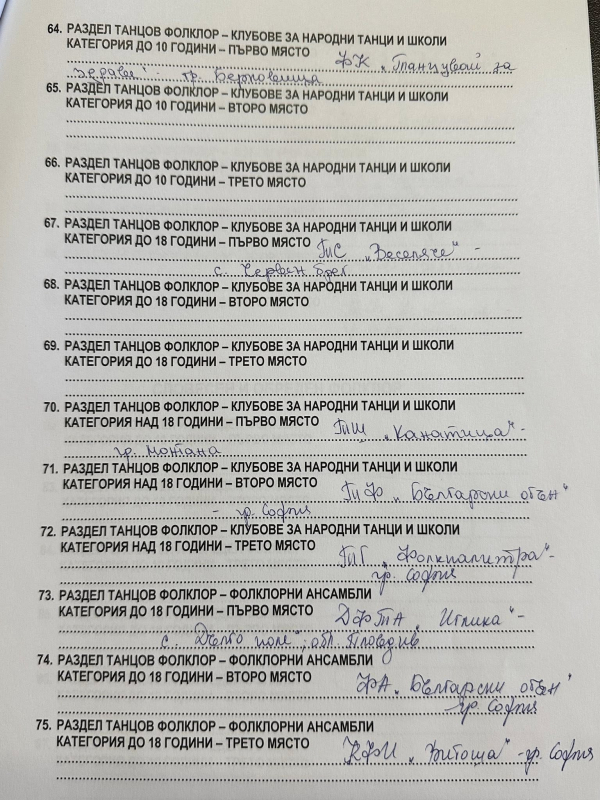 64. РАЗДЕЛ ТАНЦОВ ФОЛКЛОР – КЛУБОВЕ ЗА НАРОДНИ ТАНЦИ И ШКОЛИ
КАТЕГОРИЯ ДО 10 ГОДИНИ – ПЪРВО МЯСТО ФК „Танцувай за
здраве" - гр. Берковица
65. РАЗДЕЛ ТАНЦОВ ФОЛКЛОР – КЛУБОВЕ ЗА НАРОДНИ ТАНЦИ И ШКОЛИ
КАТЕГОРИЯ ДО 10 ГОДИНИ – ВТОРО МЯСТО
66. РАЗДЕЛ ТАНЦОВ ФОЛКЛОР – КЛУБОВЕ ЗА НАРОДНИ ТАНЦИ И ШКОЛИ
КАТЕГОРИЯ ДО 10 ГОДИНИ – ТРЕТО МЯСТО
67. РАЗДЕЛ ТАНЦОВ ФОЛКЛОР – КЛУБОВЕ ЗА НАРОДНИ ТАНЦИ И ШКОЛИ
КАТЕГОРИЯ ДО 18 ГОДИНИ – ПЪРВО МЯСТО ТС „Веселяче" -
с. Червен бряг
68. РАЗДЕЛ ТАНЦОВ ФОЛКЛОР – КЛУБОВЕ ЗА НАРОДНИ ТАНЦИ И ШКОЛИ
КАТЕГОРИЯ ДО 18 ГОДИНИ – ВТОРО МЯСТО
69. РАЗДЕЛ ТАНЦОВ ФОЛКЛОР – КЛУБОВЕ ЗА НАРОДНИ ТАНЦИ И ШКОЛИ
КАТЕГОРИЯ ДО 18 ГОДИНИ – ТРЕТО МЯСТО
70. РАЗДЕЛ ТАНЦОВ ФОЛКЛОР – КЛУБОВЕ ЗА НАРОДНИ ТАНЦИ И ШКОЛИ
КАТЕГОРИЯ НАД 18 ГОДИНИ – ПЪРВО МЯСТО ТШ „Канатица" -
гр. Монтана
71. РАЗДЕЛ ТАНЦОВ ФОЛКЛОР – КЛУБОВЕ ЗА НАРОДНИ ТАНЦИ И ШКОЛИ
КАТЕГОРИЯ НАД 18 ГОДИНИ – ВТОРО МЯСТО ТФ „Български огън"
- гр. София
72. РАЗДЕЛ ТАНЦОВ ФОЛКЛОР – КЛУБОВЕ ЗА НАРОДНИ ТАНЦИ И ШКОЛИ
КАТЕГОРИЯ НАД 18 ГОДИНИ – ТРЕТО МЯСТО ТГ „Фолкпалитра" -
гр. София
73. РАЗДЕЛ ТАНЦОВ ФОЛКЛОР – ФОЛКЛОРНИ АНСАМБЛИ
КАТЕГОРИЯ ДО 18 ГОДИНИ – ПЪРВО МЯСТО ДФТА „Иглика" -
с. Дълго поле", обл. Пловдив
74. РАЗДЕЛ ТАНЦОВ ФОЛКЛОР – ФОЛКЛОРНИ АНСАМБЛИ
КАТЕГОРИЯ ДО 18 ГОДИНИ – ВТОРО МЯСТО ФА „Български огън"
гр. София
75. РАЗДЕЛ ТАНЦОВ ФОЛКЛОР – ФОЛКЛОРНИ АНСАМБЛИ
КАТЕГОРИЯ ДО 18 ГОДИНИ – ТРЕТО МЯСТО КФИ „Витоша" - гр. София